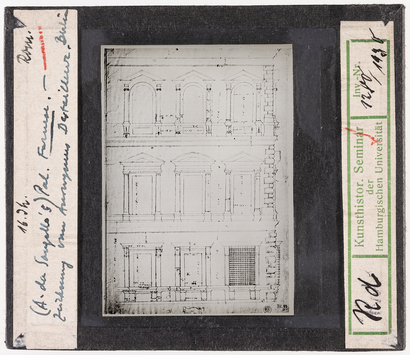 Rom.
16. Jh.
(A. da Sangallo's) Pal. Farnese. —
Zeichnung vom Anonymus Destailleur. Berlin
Kunsthistor. Seminar
der
Hamburgischen Universität
Inv.-Nr.